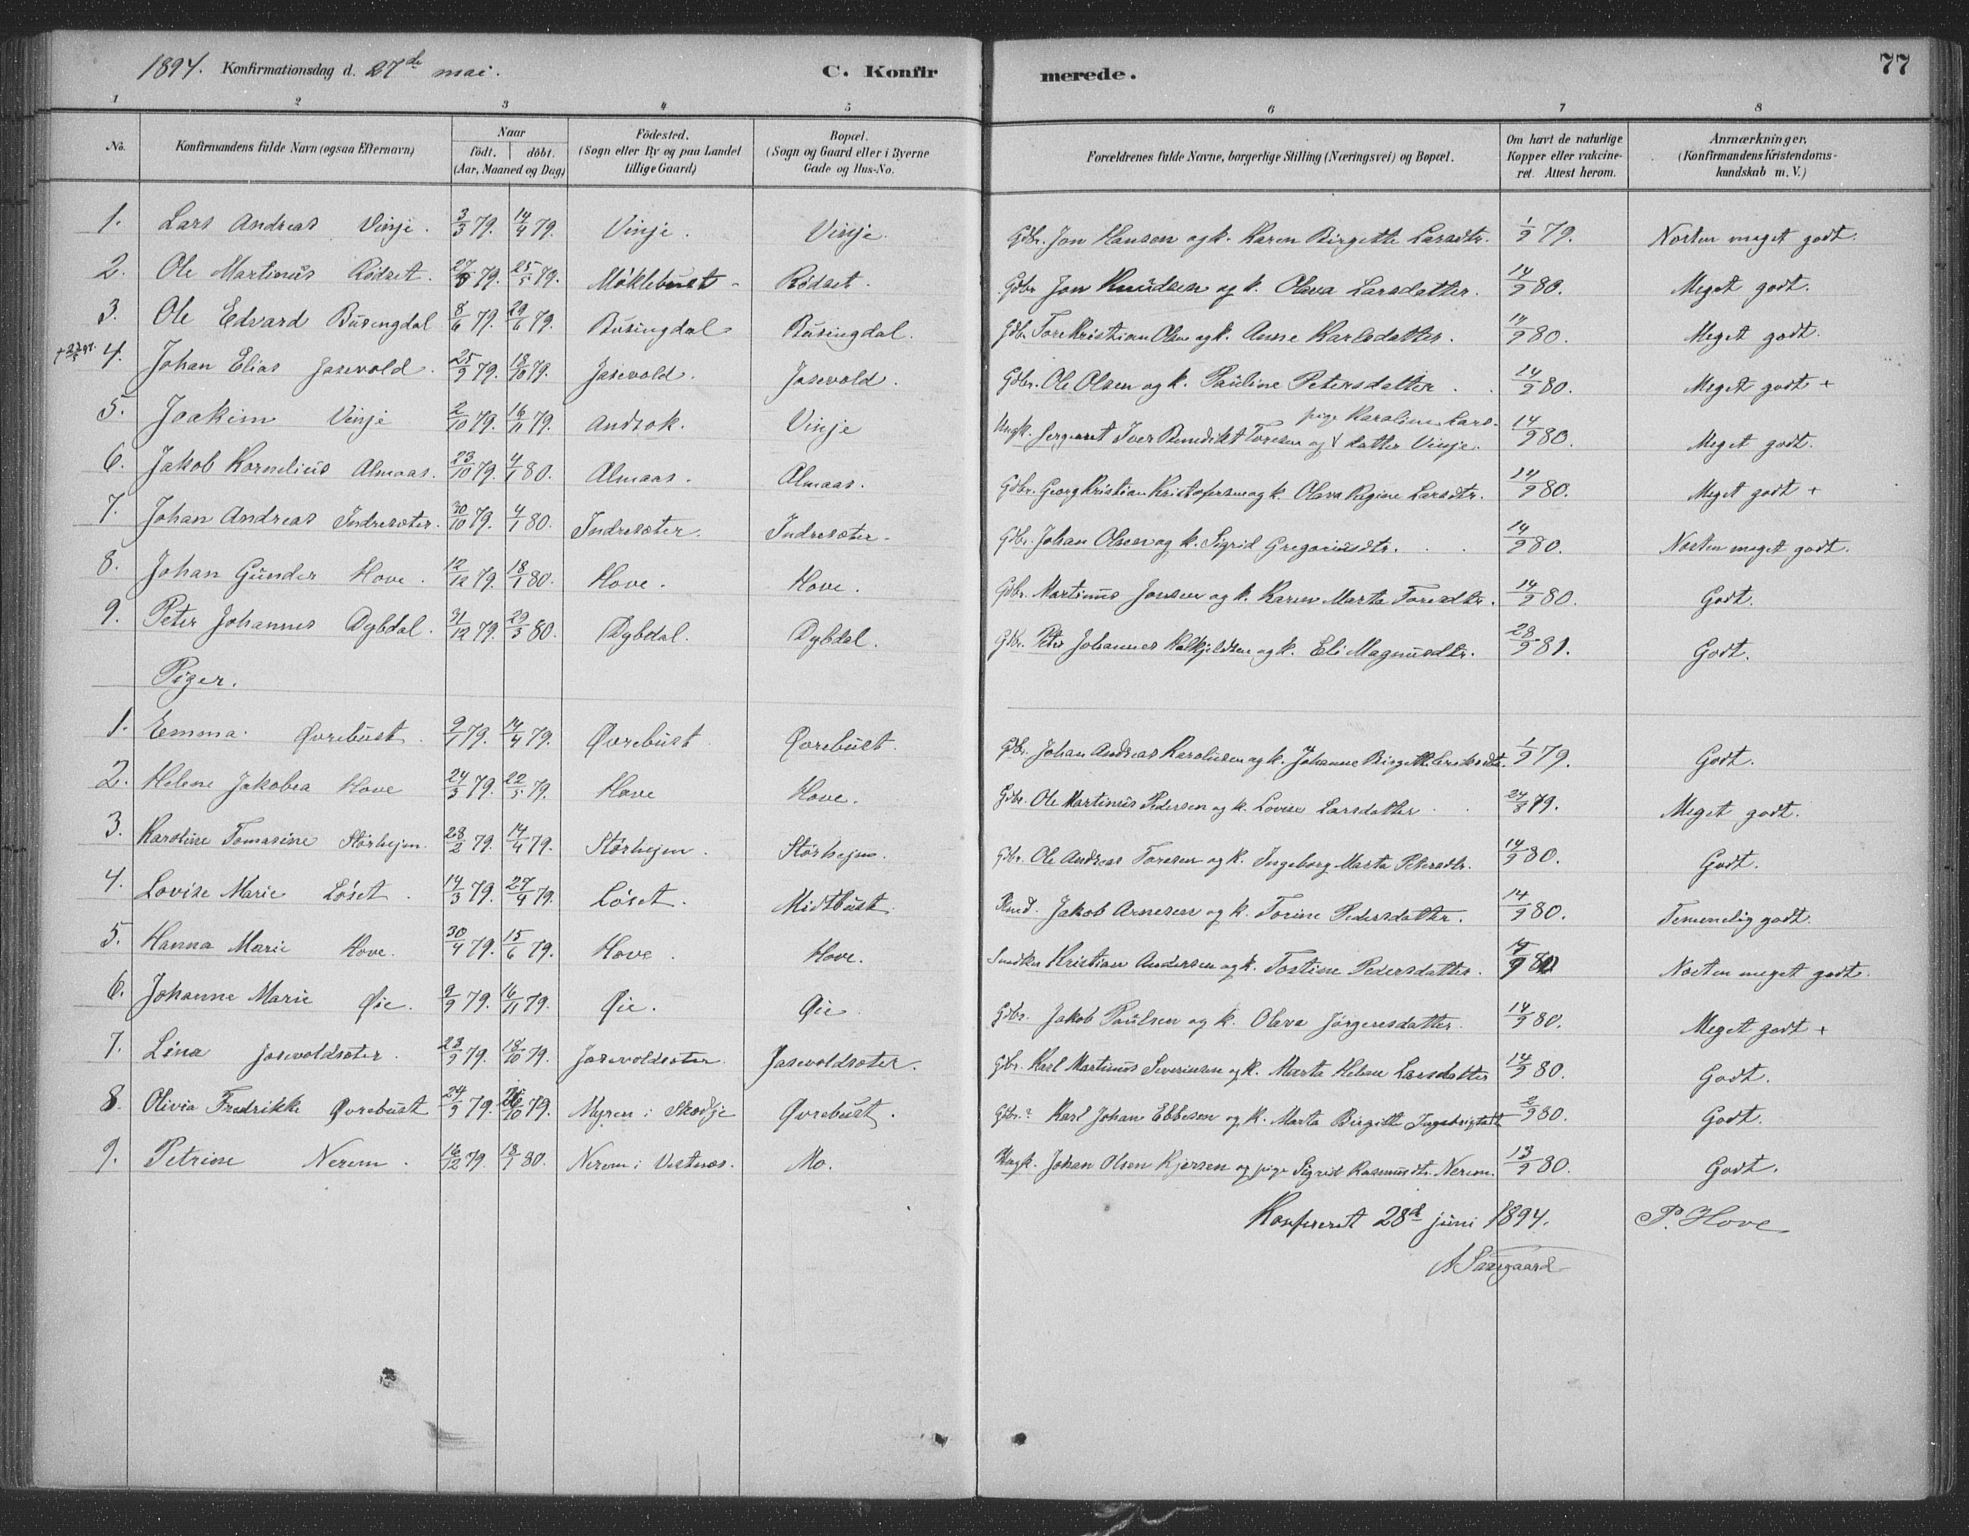 1894. Konfirmationsdag d. 27de mai. C. Konfirmerede. 77
1 2 3 4 5 6 7 8
No. Konfirmandens fulde Navn (ogsaa Efternavn) Naar födt. döbt. (Aar, Maaned og Dag) Födested. (Sogn eller By og paa Landet tillige Gaard) Bopæl. (Sogn og Gaard eller i Byerne Gade og Hus-No. Forældrenes fulde Navne, borgerlige Stilling (Næringsvei) og Bopæl. Om havt de naturlige Kopper eller vakcineret. Attest herom. Anmærkninger. (Konfirmandens Kristendomskundskab m. V.)
1. Lars Andreas Vinje. 3/3 79. 14/4 79. Vinje. Vinje. Gdbr. Jon Hansen og k. Karen Birgitte Larsdtr. 1/9 79. Næsten meget godt.
2. Ole Martinus Rödset. 79. 25/5 79. Möklebust Rödset. Gdbr Jon Knudsen og k. Olava Larsdatter. 14/9 80. Meget godt.
3. Ole Edvard Busingdal 8/6 79. 29/6 79. Busingdal Busingdal. Gdbr Tore Kristian Olsen og k. Anne Karlsdatter. 14/9 80. Meget godt.
4. Johan Elias Jasevold. 25/9 79. 18/10 79. Jasevold. Jasevold. Gdbr. Ole Olsen og k. Pauline Petersdatter. 14/9 80. Meget godt +
5. Joakim Vinje 2/10 79. 16/11 79. Andsok. Vinje Ungk. sergeant Iver Benedikt Toresen og pige Karoline Larsdatter Vinje. 14/9 80. Meget godt.
6. Jakob Kornelius Almaas. 23/10 79. 4/1 80. Almaas. Almaas. Gdbr. Georg Kristian Kristofersen og k. Olava Regine Larsdtr. 14/9 80. Meget godt +
7. Johan Andreas Indresæter. 30/10 79. 4/1 80. Indresæter. Indresæter. Gdbr. Johan Olsen og k. Sigrid Gregoriusdtr. 14/9 80. Næsten meget godt.
8. Johan Gunder Hove. 12/12 79. 18/1 80. Hove. Hove. Gdbr. Martinus Jonsen og k. Karen Marta Toresdtr. 14/9 80. Godt.
9. Peter Johannes Dybdal. 31/12 79. 29/3 80. Dybdal. Dybdal. Gdbr. Peter Johannes Halkjeldsen og k. Eli Magnusdtr. 28/9 81. Godt.
Piger.
1. Emma Øvrebust. 9/1 79. 14/4 79. Øvrebust. Øvrebust. Gdbr. Johan Andreas Karolusen og k. Johanne Birgitte 1/9 79. Godt.
2. Helene Jakobea Hove 24/3 79. 22/5 79. Hove Hove. Gdbr. Ole Martinus Pedersen og k. Lovise Larsdatter 24/8 79. Meget godt.
3. Karoline Tomasine Störhejm. 28/2 79. 14/4 79. Störhejm. Störhejm. Gdbr. Ole Andreas Toresen og k. Ingeborg Marta Petersdtr. 14/9 80. Godt.
4. Lovise Marie Löset. 14/3 79. 27/4 79. Löset. Midtbust. Jakob Arnesen og k. Torine Pedersdatter. 14/9 80. Temmelig godt.
5. Hanna Marie Hove. 30/4 79. 15/6 79. Hove. Hove. Snedker Kristian Andersen og k. Tostine Pedersdatter. Næsten meget godt.
6. Johanne Marie Øie. 9/9 79. 16/11 79. Øie. Øie. Gdbr. Jakob Paulsen og k. Olava Jörgensdatter. 14/9 80. Meget godt +
7. Lina Jasevoldsæter. 23/9 79. 18/10 79. Jasevoldsæter. Jasevoldsæter. Gdbr. Karl Martinus Severinsen og k. Marta Helene Larsdatter 14/9 80. Godt.
8. Olivia Fredrikke Øvrebust 24/9 79. 26/10 79. Myren i Skodje Øvrebust. Gdbr. Karl Johan Ebbesen og k. Marta Birgitte 2/9 80. Godt.
9. Petrine Nerem. 16/12 79. 18/1 80. Nerem i Vestnæs. Mo. Ungk. Johan Olsen Kjersen og pige Sigrid Rasmusdtr. Nerem. 13/9 80. Godt.
Konfereret 28d juni 1894. P. Hove
A Saxegaard